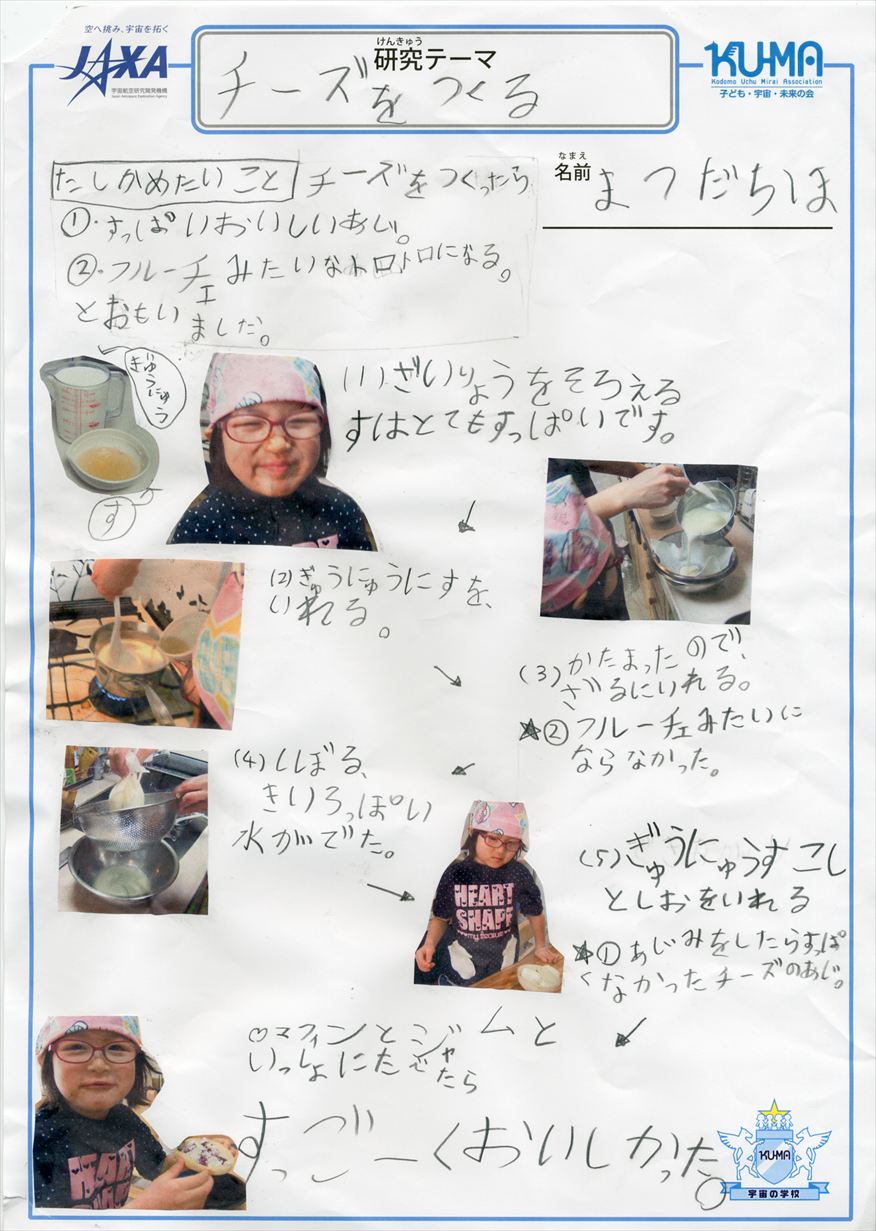 空へ挑み、宇宙を拓く
JAXA
宇宙航空研究開発機構
Japan Aerospace Exploration Agency
けんきゅう
研究テーマ
チーズをつくる
KU-MA
Kodomo Uchu Mirai Association
子ども・宇宙・未来の会
なまえ
名前 まつだちほ
たしかめたいこと チーズをつくったら
①・すっぱいおいしいあじ。
②・フルーチェみたいなトロトロになる。
とおもいました。
ぎゅうにゅう
す
(1)ざいりょうをそろえる
すはとてもすっぱいです。
(2)ぎゅうにゅうにすを、
いれる。
(3)かたまったので、
ざるにいれる。
★②フルーチェみたいに
ならなかった。
(4)しぼる、
きいろっぽい
水がでた。
HEART
SHAPE
my treasure
(5)ぎゅうにゅうすこし
としおをいれる
★①あじみをしたらすっぱ
くなかったチーズのあじ。
♡マフィンとジャムと
いっしょにたべたら
すっごーくおいしかった。
KU-MA
宇宙の学校